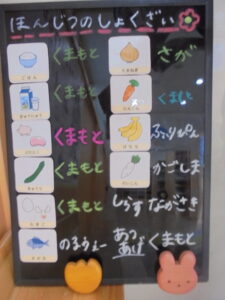 ほんじつのしょくざい
ごはん くまもと
ぎゅうにゅう くまもと
くまもと
きゅうり くまもと
たまご くまもと
さかな のるうぇー
たまねぎ さが
にんじん くまもと
ばなな ふぃりぴん
だいこん かごしま
しらす ながさき
あつあげ くまもと